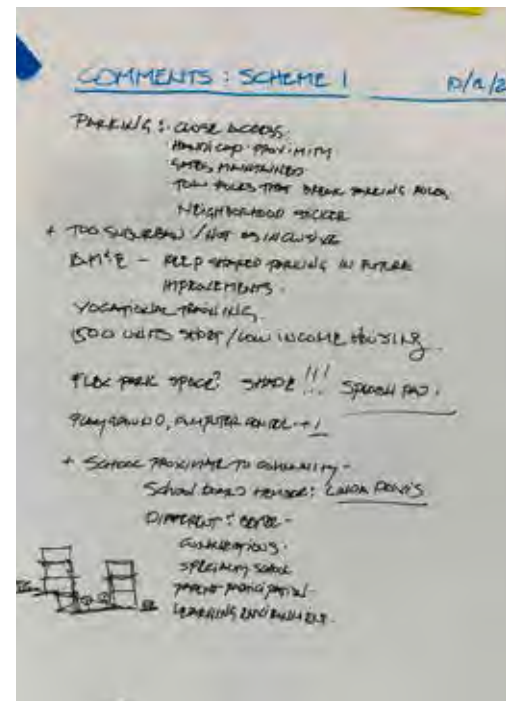 COMMENTS : SCHEME 1
PARKING : CLOSE ACCESS.
HANDICAP PROXIMITY
GATES MAINTAINED
TOW FOLKS THAT BREAK PARKING RULES
NEIGHBORHOOD STICKER
+ TOO SUBURBAN / NOT AS INCLUSIVE
- KEEP SHARED PARKING IN FUTURE
IMPROVEMENTS.
VOCATIONAL TRAINING.
1500 UNITS SHORT / LOW INCOME HOUSING
FLEX PARK SPACE? SHADE !!! SPLASH PAD.
PLAYGROUND, COMPUTER CENTER
+ SCHOOL PROXIMATE TO COMMUNITY -
SCHOOL BOARD MEMBER: LINDA DAVIS
DIFFERENT :
SPECIALTY SCHOOL
PARENT PARTICIPATION.
LEARNING ENVIRONMENT.